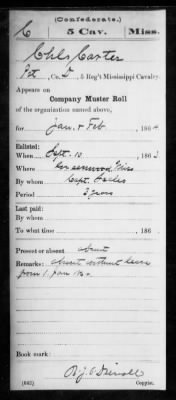 (Confederate.)
C 5 Cav. Miss.
Chls Carter
Pvt, Co. , 5 Reg't Mississippi Cavalry.
Appears on
Company Muster Roll
of the organization named above,
for Jan. & Feb, 1864
Enlisted:
When Sept. 10, 1863
Where Miss
By whom Capt.
Period 3 years
Last paid:
By whom
To what time , 186
Present or absent absent
Remarks: absent without leave
from 1. Jan
Book mark:
R.J.
(642) Copyist.